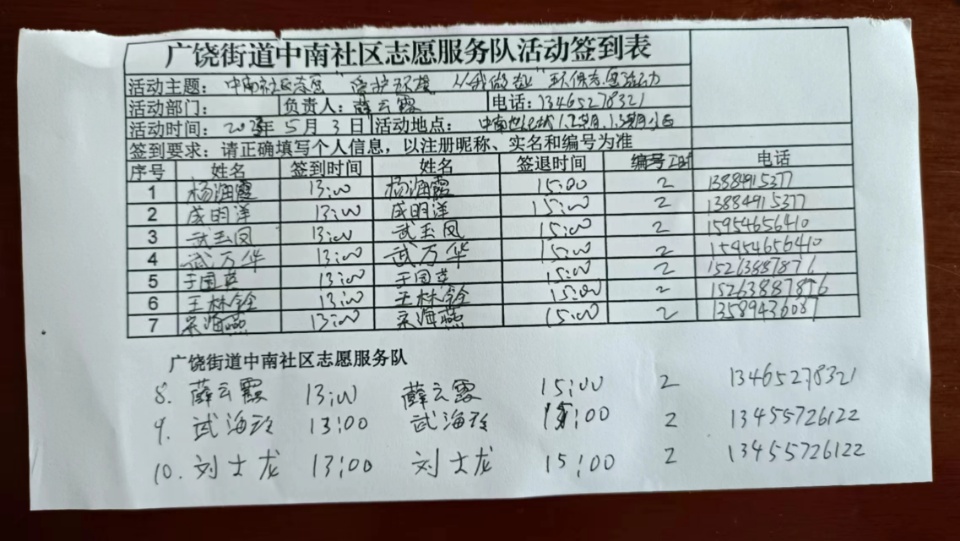 广饶街道中南社区志愿服务队活动签到表
活动主题：中南社区志愿"爱护环境"从我做起"环保志愿活动
活动部门： 负责人：薛云霞 电话：13465278321
活动时间：2023年5月3日 活动地点：中南世纪城
签到要求：请正确填写个人信息，以注册昵称、实名和编号为准
序号 姓名 签到时间 姓名 签退时间 编号工时 电话
1 杨海霞 13:00 杨海霞 15:00 2 13884915377
2 成明洋 13:00 成明洋 15:00 2 13884915377
3 武玉凤 13:00 武玉凤 15:00 2 15954656410
4 武万华 13:00 武万华 15:00 2 15954656410
5 于国英 13:00 于国英 15:00 2 15263887876
6 王林铨 13:00 王林铨 15:00 2 15263887876
7 宋海燕 13:00 宋海燕 15:00 2 13589436087
广饶街道中南社区志愿服务队
8. 薛云霞 13:00 薛云霞 15:00 2 13465278321
9. 武海玲 13:00 武海玲 15:00 2 13455726122
10. 刘士龙 13:00 刘士龙 15:00 2 13455726122